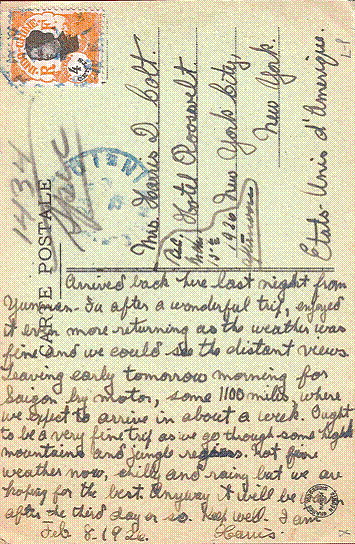 CARTE POSTALE
1434
Mrs. Harris D. Colt.
Hotel Roosevelt.
New York City
New York.
Etats-Unis d'Amerique.
Arrived back here last night from
Yunnan-Fu after a wonderful trip, enjoyed
it even more returning as the weather was
fine and we could see the distant views.
Leaving early tomorrow morning for
Saigon by motor, some 1100 miles, where
we expect to arrive in about a week. Ought
to be a very fine trip as we go through some high
mountains and jungle regions. Not fine
weather now, chilly and rainy but we are
hoping for the best. Anyway it will be
after the third day or so. Keep well. I am
Feb 8. 1926. Harris.